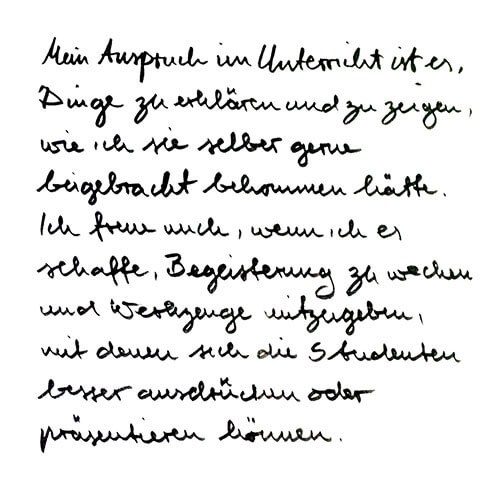 Mein Anspruch im Unterricht ist es,
Dinge zu erklären und zu zeigen,
wie ich sie selber gerne
beigebracht bekommen hätte.
Ich freue mich, wenn ich es
schaffe, Begeisterung zu wecken
und Werkzeuge mitzugeben,
mit denen sich die Studenten
besser ausdrücken oder
präsentieren können.